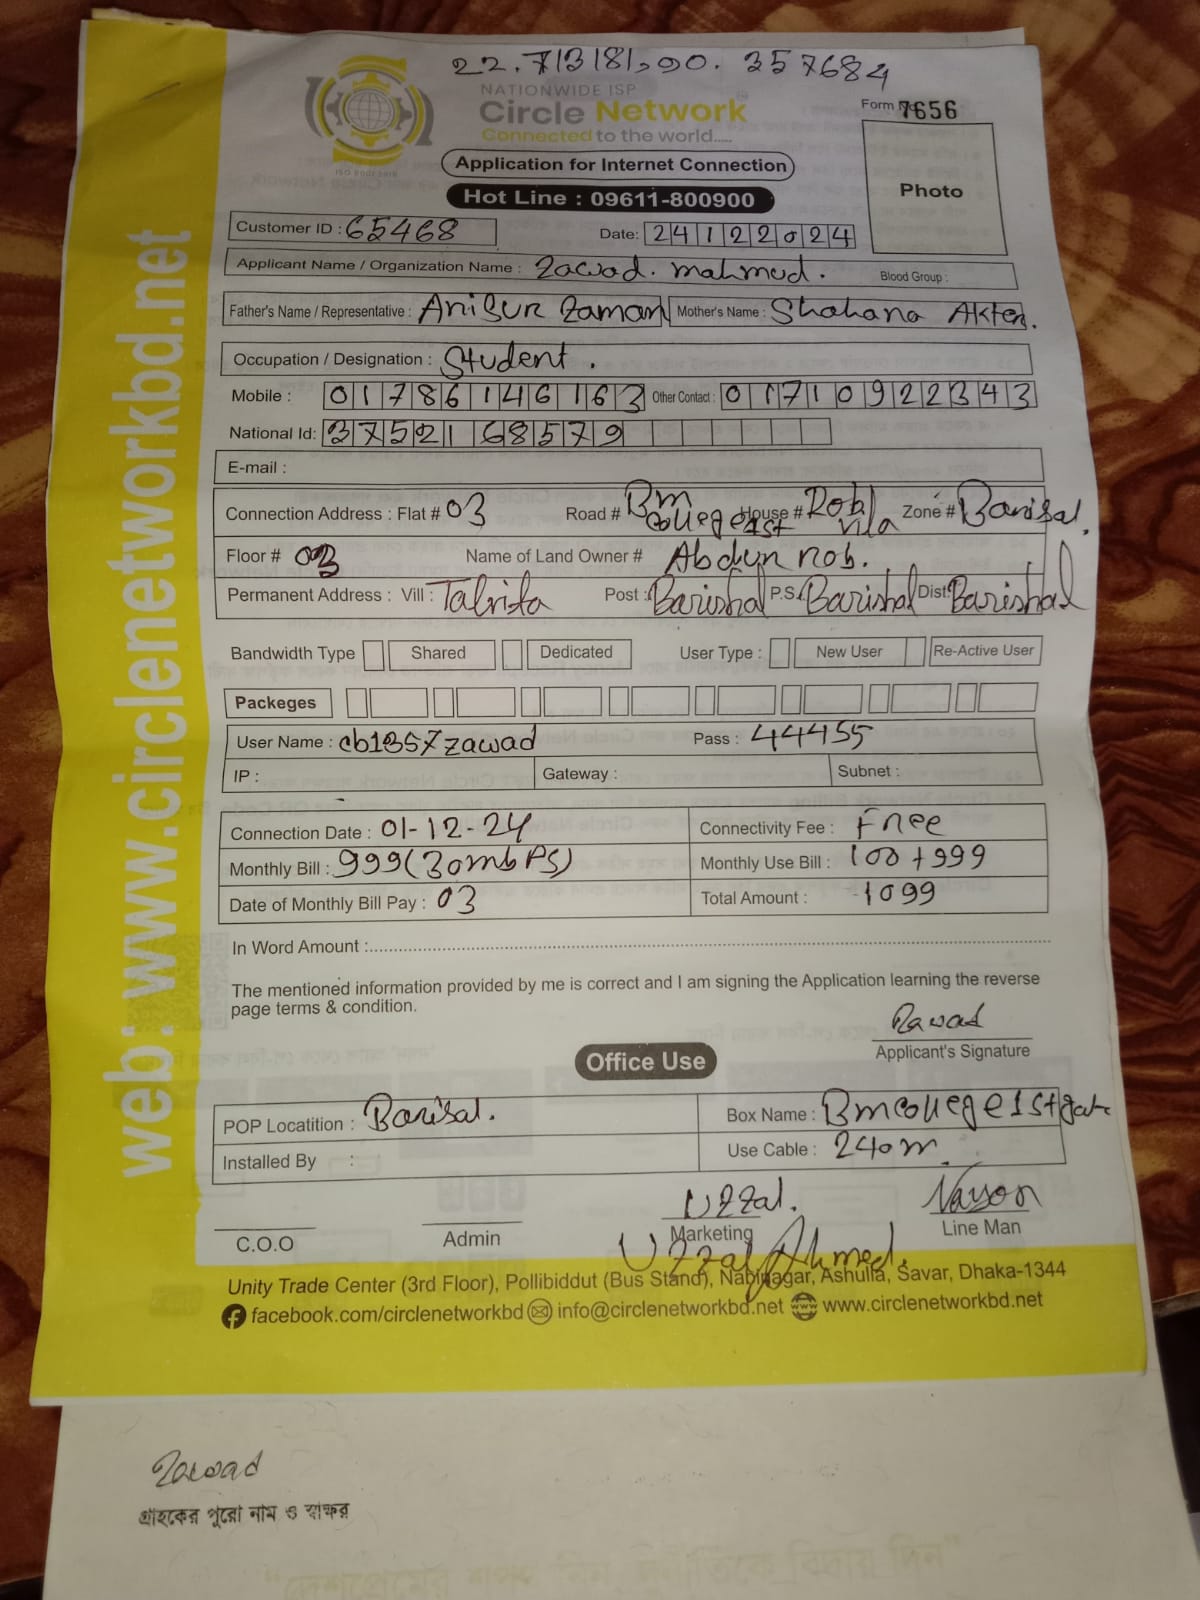 22.713181,90.357684
NATIONWIDE ISP
Circle Network
Connected to the world.....
ISO 9001:2015
Form No 7656
Application for Internet Connection
Photo
Hot Line : 09611-800900
Customer ID : 65468 Date: 24122024
Applicant Name / Organization Name : Zawad. mahmud. Blood Group :
Father's Name / Representative : Anisur Zaman Mother's Name : Shahana Akter.
Occupation / Designation : Student.
Mobile : 01786146163 Other Contact : 01710922343
National Id: 3752168579
E-mail :
Connection Address : Flat # 03 Road # Bm college 1st House # Rob. vila Zone # Barisal.
Floor # 03 Name of Land Owner # Abdur rob.
Permanent Address : Vill : Post : Barishal P.S. Barishal Dist: Barishal
Bandwidth Type Shared Dedicated User Type : New User Re-Active User
Packeges
User Name : cb1357zawad Pass : 44455
IP : Gateway : Subnet :
Connection Date : 01-12-24 Connectivity Fee : Free
Monthly Bill : 999(30mbPS) Monthly Use Bill : 100+999
Date of Monthly Bill Pay : 03 Total Amount : 1099
In Word Amount :
The mentioned information provided by me is correct and I am signing the Application learning the reverse
page terms & condition.
Zawad
Applicant's Signature
Office Use
POP Locatition : Barisal. Box Name : Bm college 1st gate
Installed By : Use Cable : 240m.
Uzzal. Nayon
C.O.O Admin Marketing Line Man
Uzzal Ahmed.
Unity Trade Center (3rd Floor), Pollibiddut (Bus Stand), Nabinagar, Ashulia, Savar, Dhaka-1344
facebook.com/circlenetworkbd info@circlenetworkbd.net www.circlenetworkbd.net
web: www.circlenetworkbd.net
Zawad
গ্রাহকের পুরো নাম ও স্বাক্ষর
"দেশপ্রেমের শপথ নিন, দুর্নীতিকে বিদায় দিন"